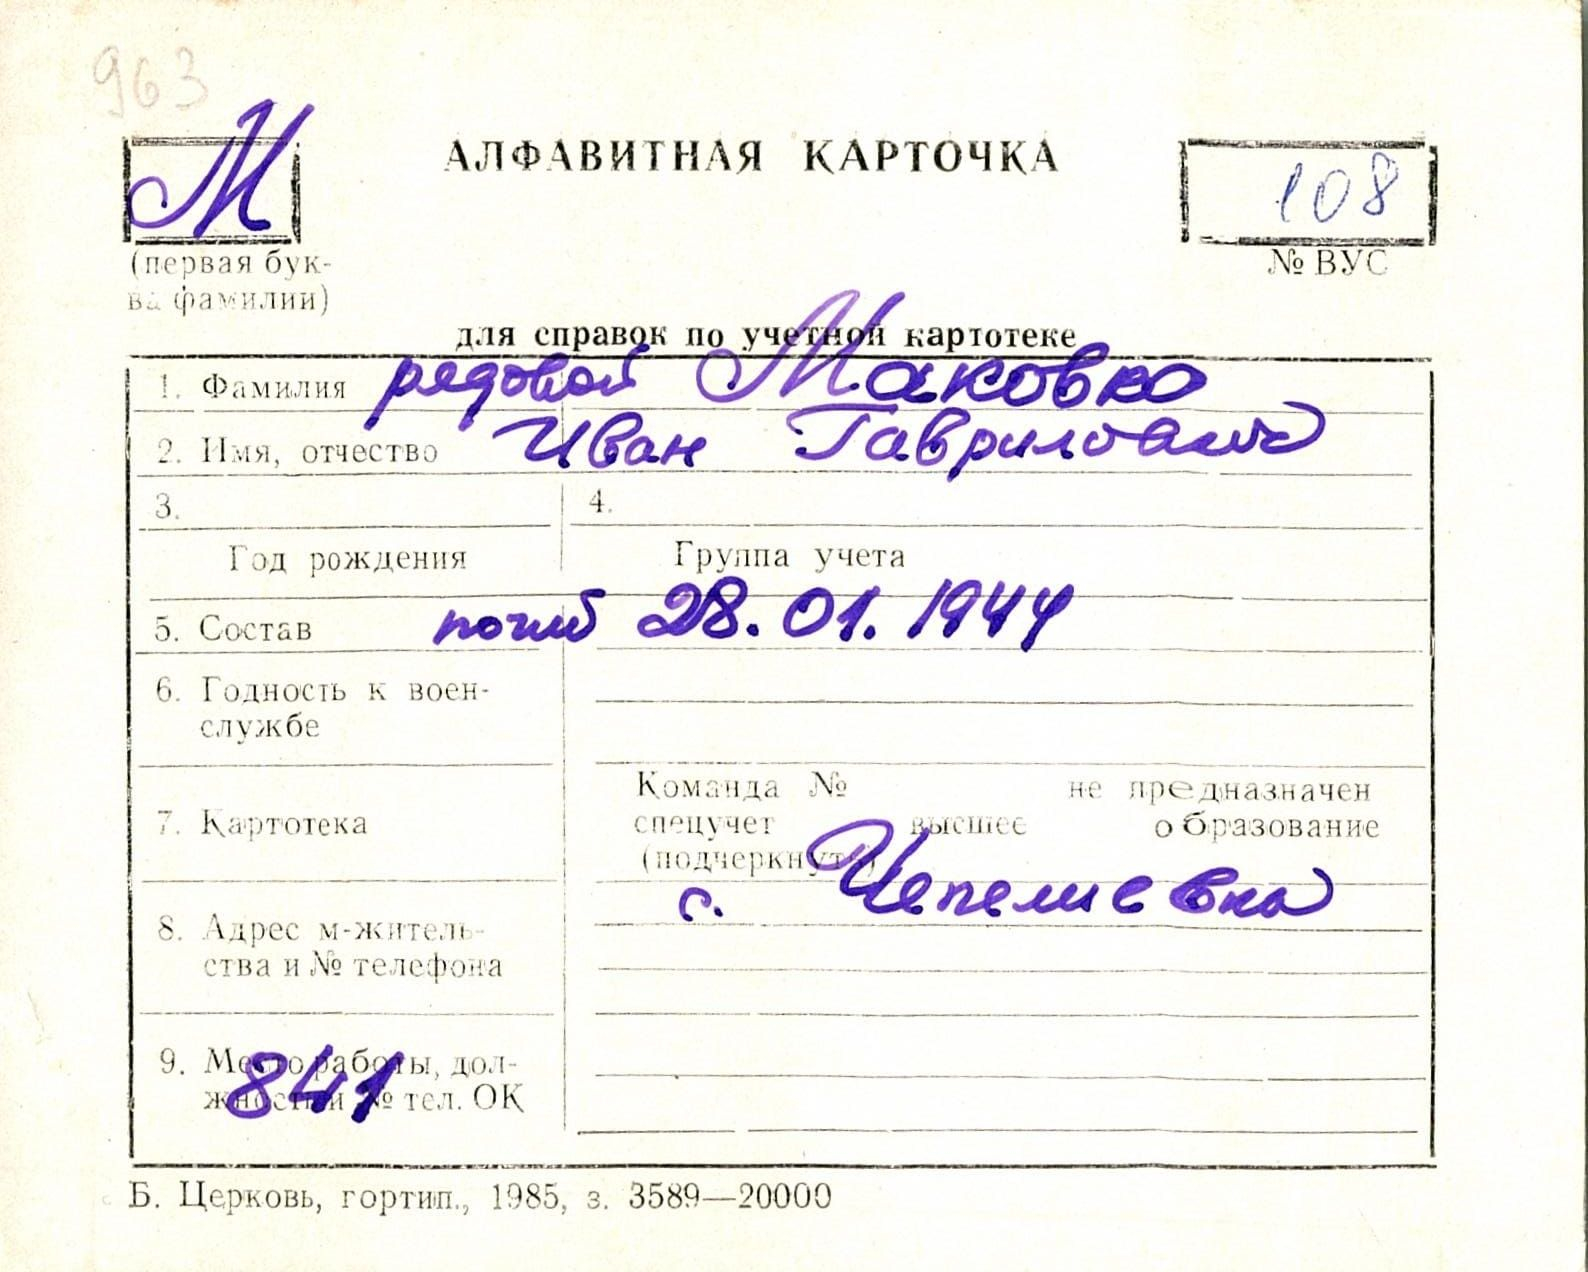 963
М
АЛФАВИТНАЯ КАРТОЧКА
108
(первая бук-
ва фамилии)
№ ВУС
для справок по учетной картотеке
1. Фамилия рядовой Маковка
2. Имя, отчество Иван Гаврилович
3. 4.
Год рождения Группа учета
5. Состав погиб 28.01.1944
6. Годность к воен-
службе
Команда № не предназначен
7. Картотека спецучет высшее образование
(подчеркнуть)
с. Чепелиевка
8. Адрес м-житель-
ства и № телефона
9. Место работы, дол-
жность и № тел. ОК
841
Б. Церковь, гортип., 1985, з. 3589—20000